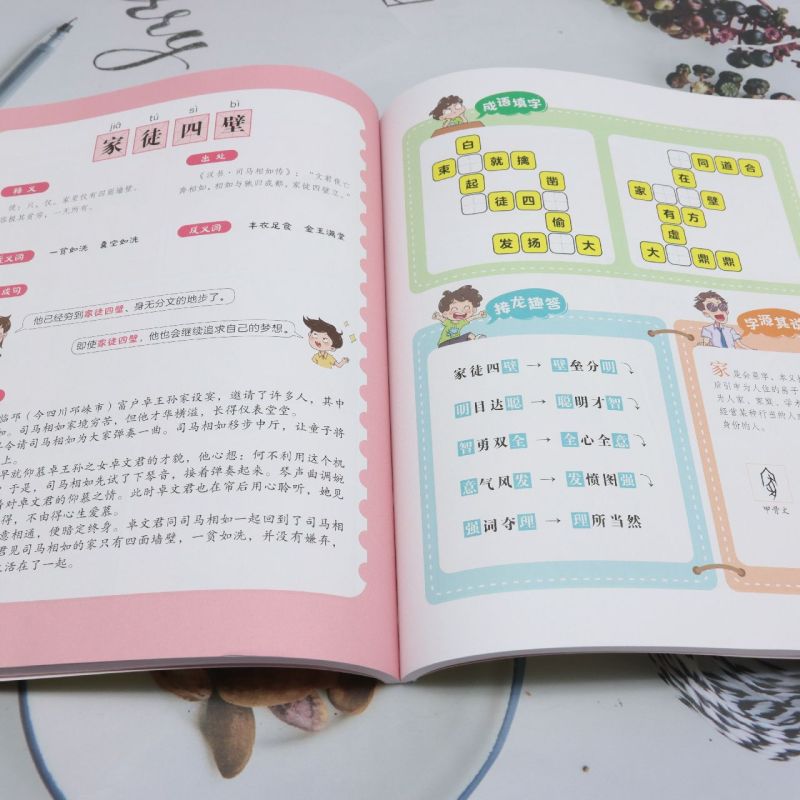 rry
jiā tú sì bì
家徒四壁
释义
徒：只，仅。家里仅有四面墙壁。
容极其贫穷，一无所有。
出处
《汉书·司马相如传》："文君夜亡
奔相如，相如与驰归成都，家徒四壁立。"
义词
一贫如洗 室空如洗
反义词
丰衣足食 金玉满堂
成句
他已经穷到家徒四壁、身无分文的地步了。
即使家徒四壁，他也会继续追求自己的梦想。
临邛（今四川邛崃市）富户卓王孙家设宴，邀请了许多人，其中
如。司马相如家境穷苦，但他才华横溢，长得仪表堂堂。
令请司马相如为大家弹奏一曲。司马相如移步中厅，让童子将
上。
早就仰慕卓王孙之女卓文君的才貌，他心想：何不利用这个机
于是，司马相如先试了下琴音，接着弹奏起来。琴声曲调婉
着对卓文君的仰慕之情。此时卓文君也在帘后用心聆听，她见
得，不由得心生爱慕。
意相通，便暗定终身。卓文君同司马相如一起回到了司马相
君见司马相如的家只有四面墙壁，一贫如洗，并没有嫌弃，
生活在了一起。
成语填字
白
束 就擒
起 凿
徒四
偷
发扬 大
同道合
在
家 壁
有方
虚
大 鼎鼎
接龙趣答
家徒四壁 → 壁垒分明
明目达聪 → 聪明才智
智勇双全 → 全心全意
意气风发 → 发愤图强
强词夺理 → 理所当然
字源其说
家 是会意字，本义
后引申为人住的房子
为人家、家庭、学术
经营某种行当的人
身份的人。
甲骨文